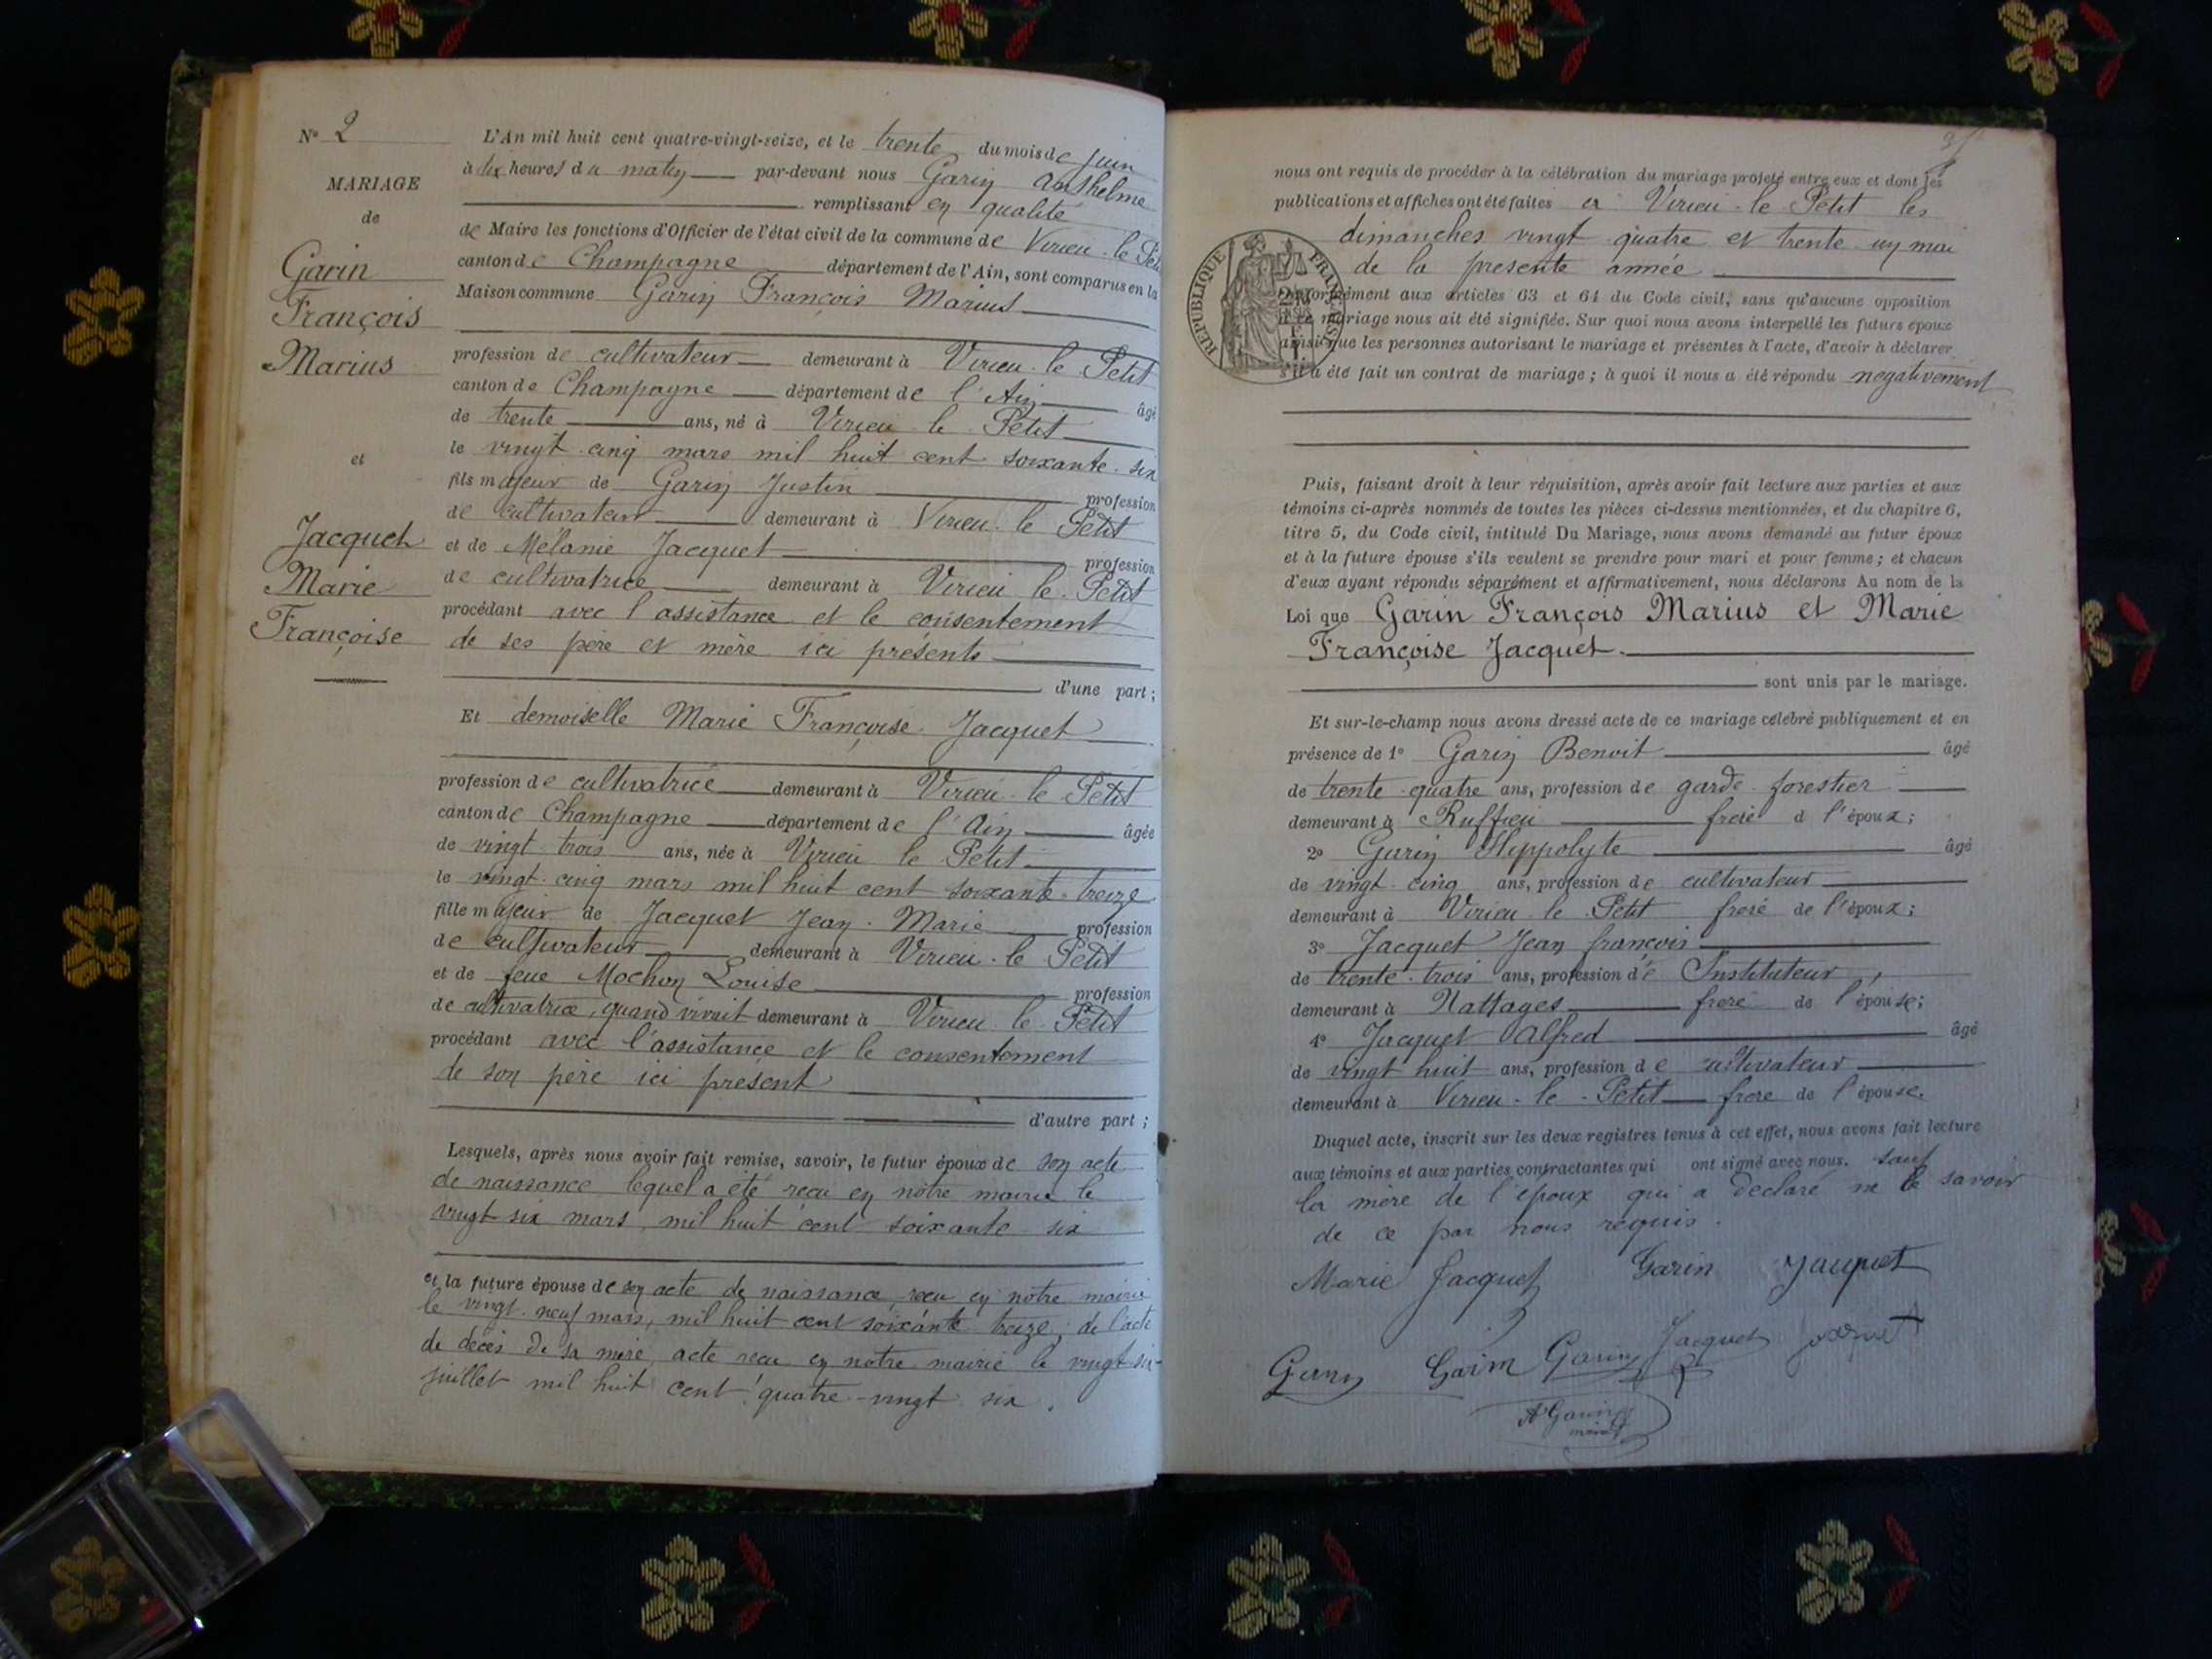 N° 2
MARIAGE
de
Garin
François
Marius
et
Jacquet
Marie
Françoise
L'An mil huit cent quatre-vingt-seize, et le trente du mois de juin
à dix heures du matin par-devant nous Garin Anthelme
remplissant en qualité
de Maire les fonctions d'Officier de l'état civil de la commune de Virieu-le-Petit
canton de Champagne département de l'Ain, sont comparus en la
Maison commune Garin François Marius
profession de cultivateur demeurant à Virieu-le-Petit
canton de Champagne département de l'Ain âgé
de trente ans, né à Virieu le Petit
le vingt-cinq mars mil huit cent soixante-six
fils majeur de Garin Justin profession
de cultivateur demeurant à Virieu-le Petit
et de Mélanie Jacquet profession
de cultivatrice demeurant à Virieu le-Petit
procédant avec l'assistance et le consentement
de ses père et mère ici présents
d'une part ;
Et demoiselle Marie Françoise Jacquet
profession de cultivatrice demeurant à Virieu-le Petit
canton de Champagne département de l'Ain âgée
de vingt trois ans, née à Virieu le Petit
le vingt-cinq mars mil huit cent soixante-treize
fille majeur de Jacquet Jean-Marie profession
de cultivateur demeurant à Virieu-le Petit
et de feue Mochon Louise profession
de cultivatrice, quand vivait demeurant à Virieu-le-Petit
procédant avec l'assistance et le consentement
de son père ici présent
d'autre part ;
Lesquels, après nous avoir fait remise, savoir, le futur époux de son acte
de naissance lequel a été reçu en notre mairie le
vingt six mars, mil huit cent soixante six
et la future épouse de son acte de naissance, reçu en notre mairie
le vingt-neuf mars, mil huit cent soixante treize; de l'acte
de décès de sa mère, acte reçu en notre mairie le vingt-six
juillet mil huit cent quatre-vingt six.
nous ont requis de procéder à la célébration du mariage projeté entre eux et dont les
publications et affiches ont été faites à Virieu-le Petit les
dimanches vingt quatre et trente-un mai
de la présente année
RÉPUBLIQUE FRANÇAISE
Conformément aux articles 63 et 64 du Code civil, sans qu'aucune opposition
à ce mariage nous ait été signifiée. Sur quoi nous avons interpellé les futurs époux
ainsi que les personnes autorisant le mariage et présentes à l'acte, d'avoir à déclarer
s'il a été fait un contrat de mariage ; à quoi il nous a été répondu négativement
Puis, faisant droit à leur réquisition, après avoir fait lecture aux parties et aux
témoins ci-après nommés de toutes les pièces ci-dessus mentionnées, et du chapitre 6,
titre 5, du Code civil, intitulé Du Mariage, nous avons demandé au futur époux
et à la future épouse s'ils veulent se prendre pour mari et pour femme ; et chacun
d'eux ayant répondu séparément et affirmativement, nous déclarons Au nom de la
Loi que Garin François Marius et Marie
Françoise Jacquet
sont unis par le mariage.
Et sur-le-champ nous avons dressé acte de ce mariage célébré publiquement et en
présence de 1° Garin Benoit âgé
de trente-quatre ans, profession de garde-forestier
demeurant à Ruffieu frère d l'époux ;
2° Garin Hippolyte âgé
de vingt-cinq ans, profession de cultivateur
demeurant à Virieu-le-Petit frère de l'époux ;
3° Jacquet Jean françois
de trente-trois ans, profession de Instituteur,
demeurant à Nattages frère de l'épouse ;
4° Jacquet Alfred âgé
de vingt huit ans, profession de cultivateur
demeurant à Virieu-le-Petit frère de l'épouse.
Duquel acte, inscrit sur les deux registres tenus à cet effet, nous avons fait lecture
aux témoins et aux parties contractantes qui ont signé avec nous. sauf
la mère de l'époux qui a déclaré ne le savoir
de ce par nous requis.
Marie Jacquet Garin Jacquet
Garin Garin Garin Jacquet Jacquet
A Garin
maire